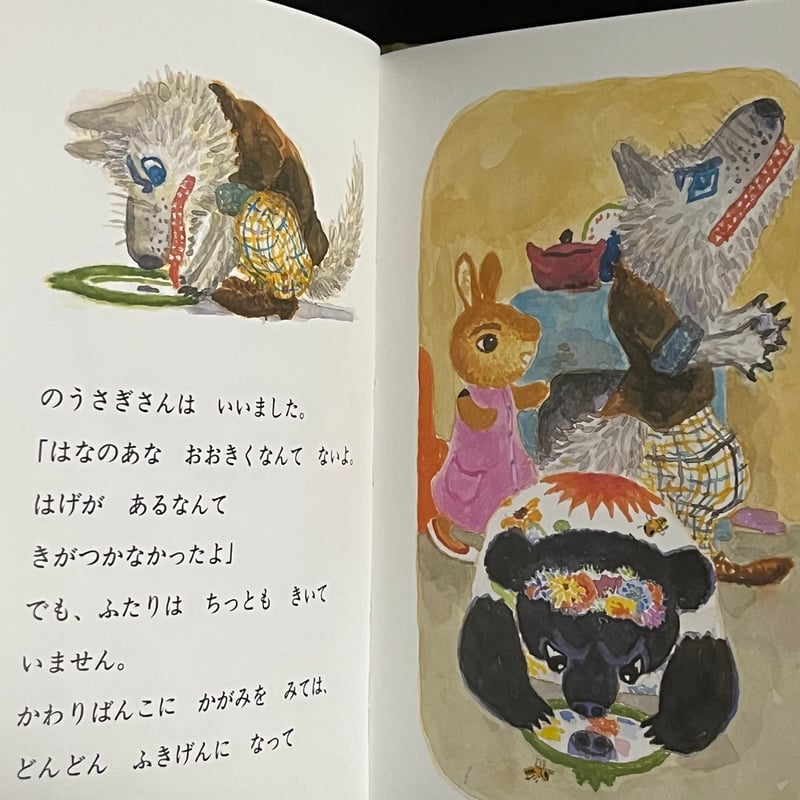 のうさぎさんは いいました。
「はなのあな おおきくなんて ないよ。
はげが あるなんて
きがつかなかったよ」
でも、ふたりは ちっとも きいて
いません。
かわりばんこに かがみを みては、
どんどん ふきげんに なって